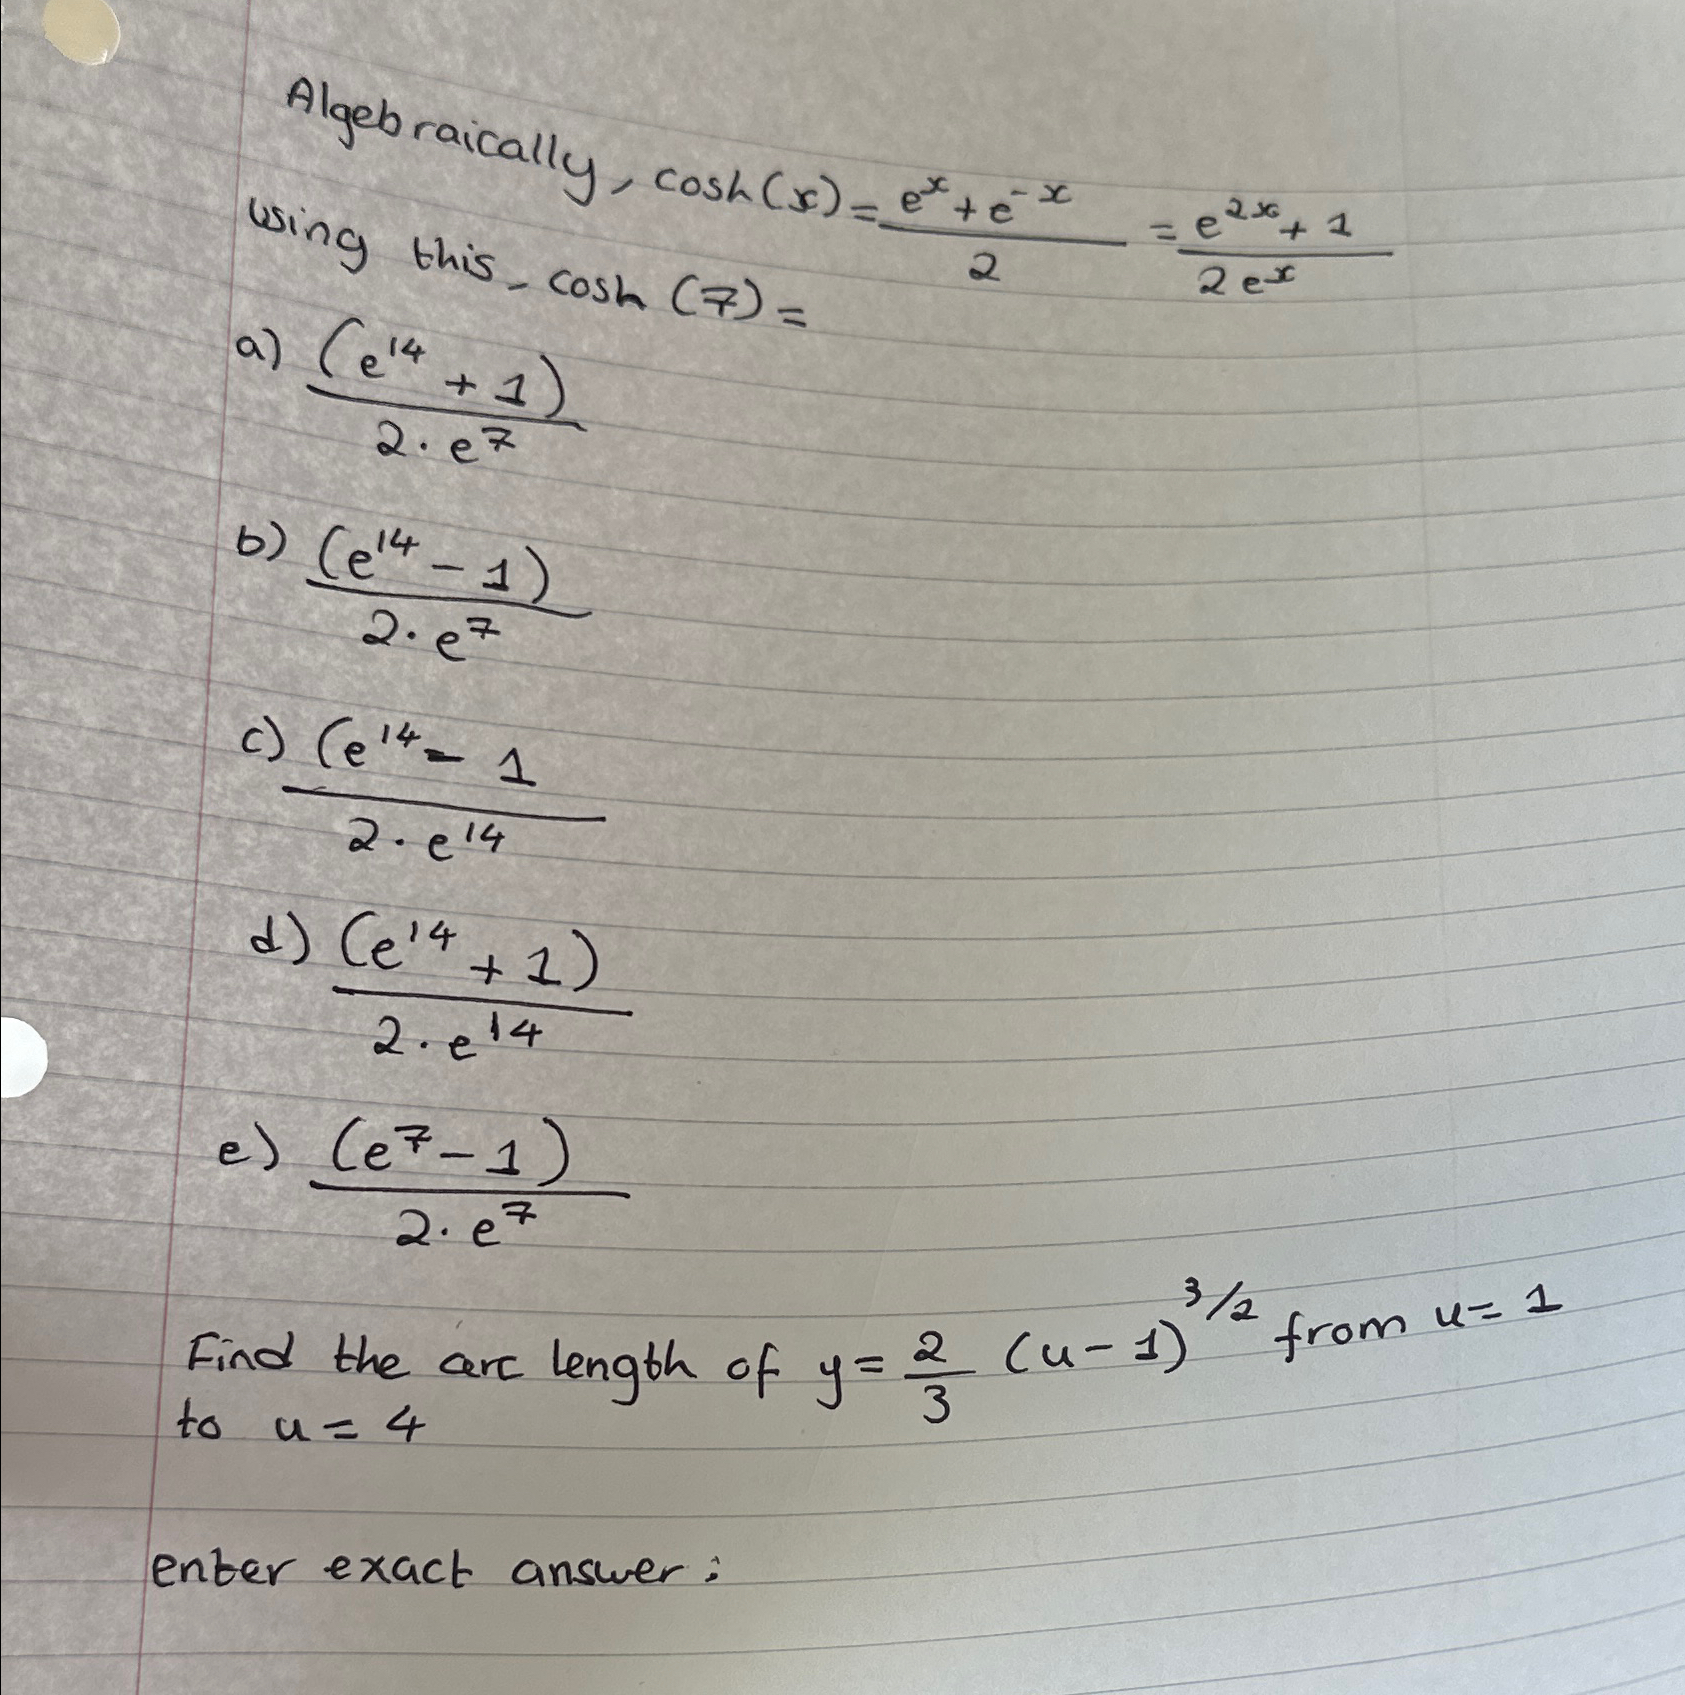 Algebraically, cosh(x) = (e^x + e^-x)/2 = (e^2x + 1)/(2e^x)
using this, cosh (7) =
a) (e^14 + 1)/(2 · e^7)
b) (e^14 - 1)/(2 · e^7)
c) (e^14 - 1/(2 · e^14
d) (e^14 + 1)/(2 · e^14
e) (e^7 - 1)/(2 · e^7
Find the arc length of y = 2/3 (u - 1)^3/2 from u = 1
to u = 4
enter exact answer: